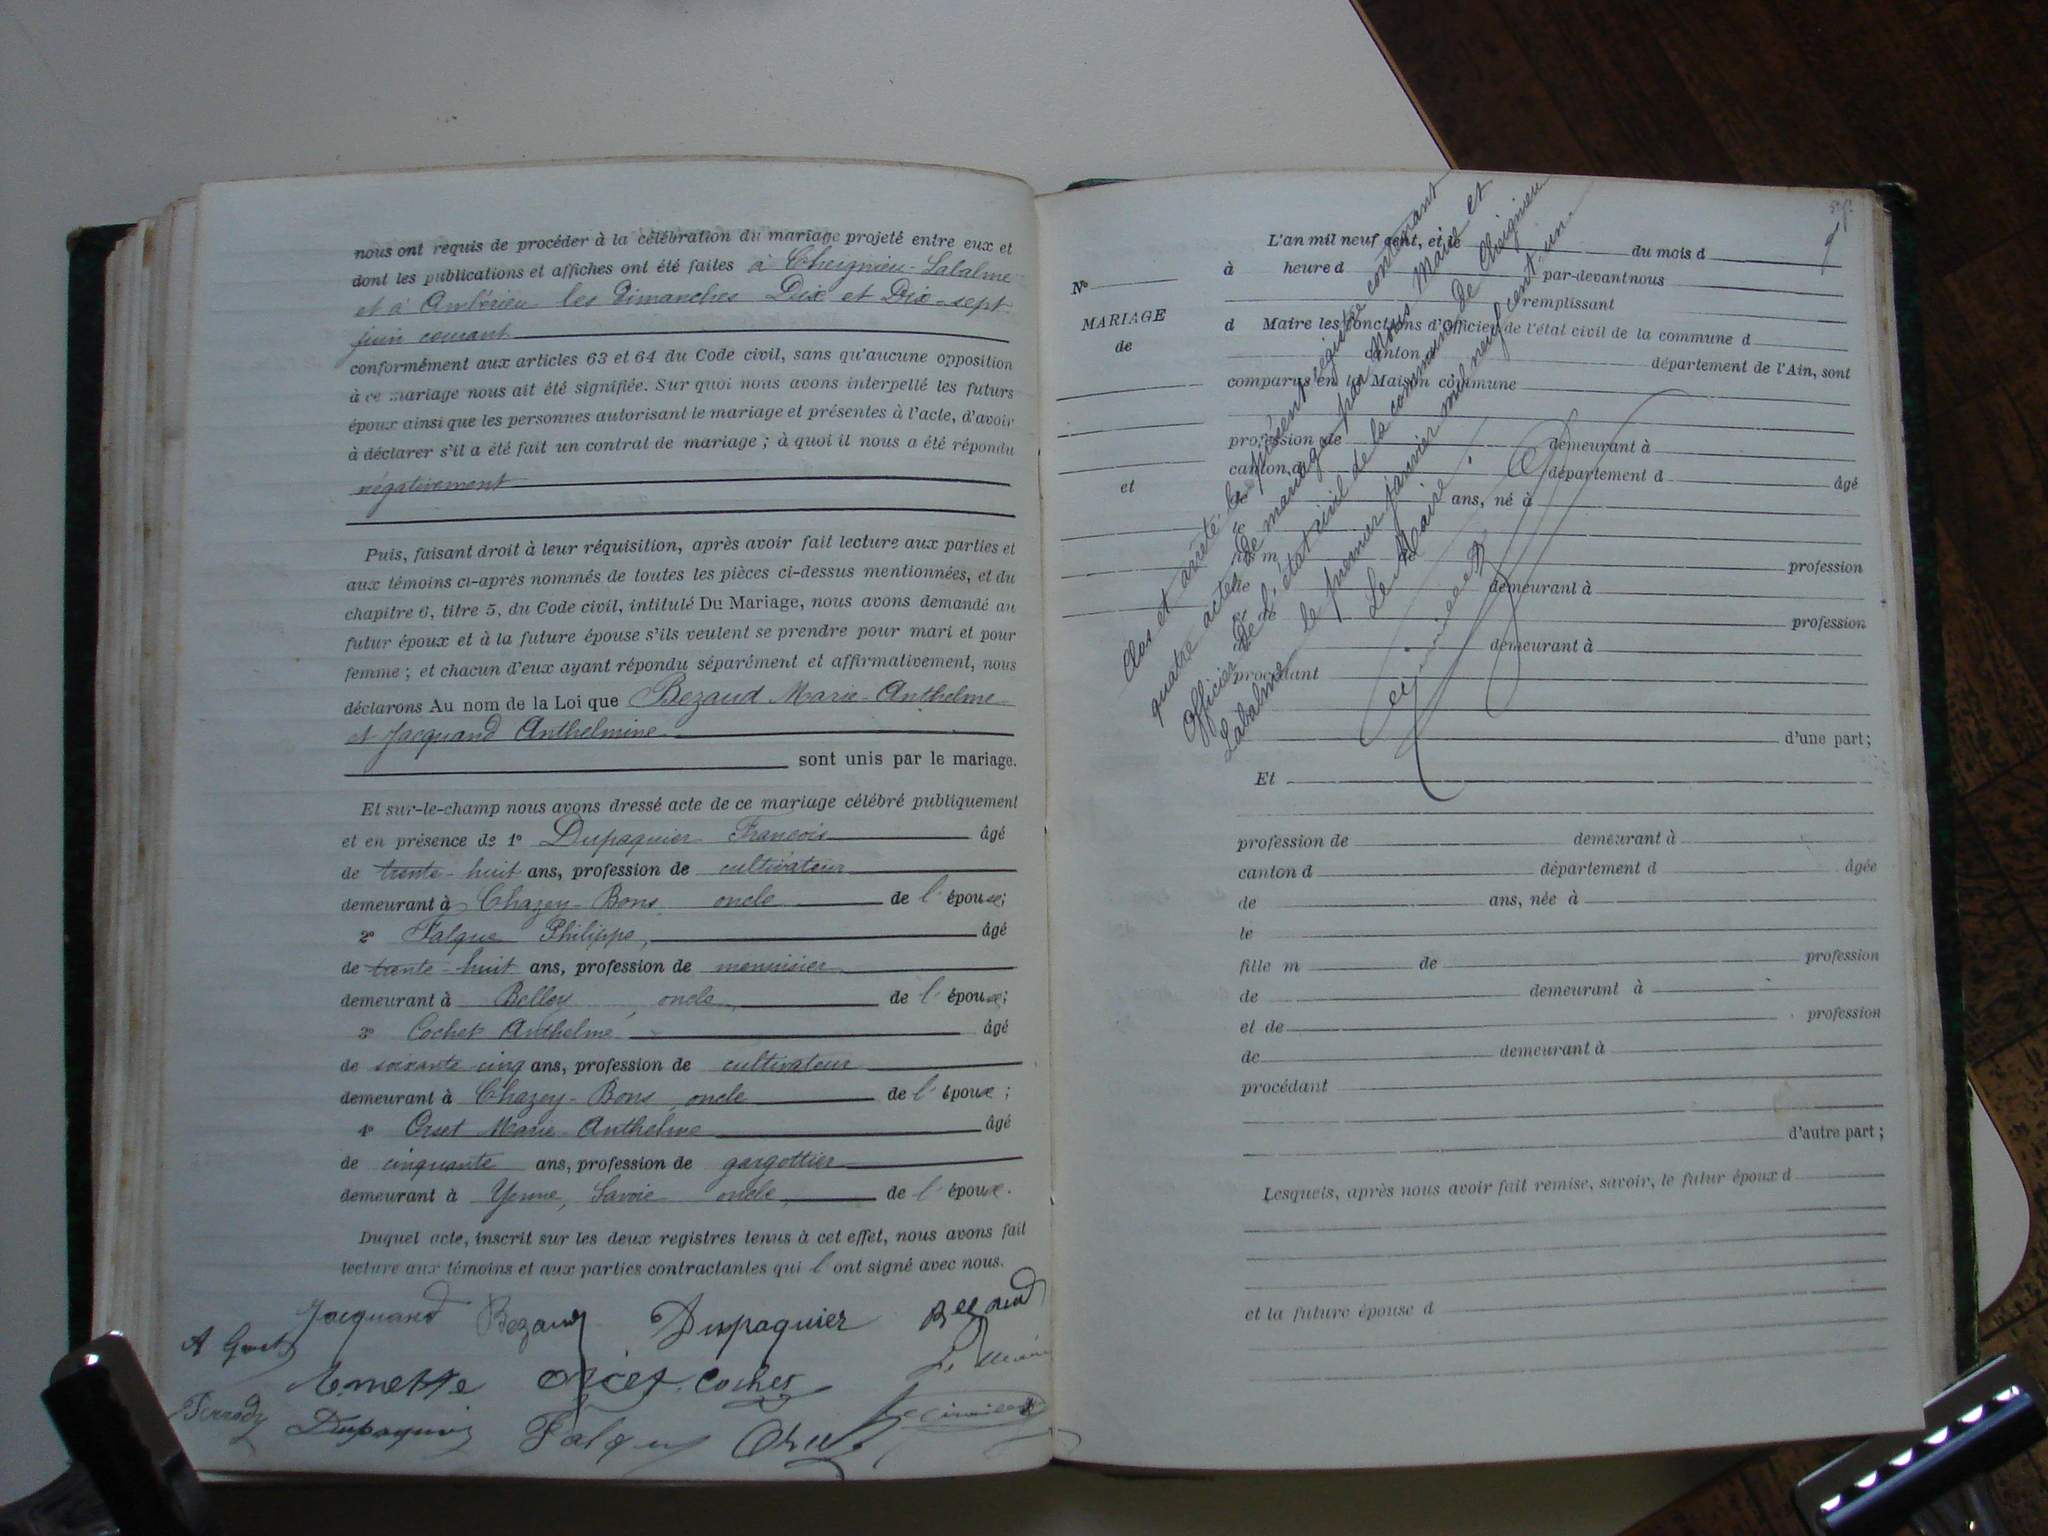 nous ont requis de procéder à la célébration du mariage projeté entre eux et
dont les publications et affiches ont été faites à Cheignieu-Labalme
et à Ambérieu les dimanches Dix et Dix-sept
juin courant
conformément aux articles 63 et 64 du Code civil, sans qu'aucune opposition
à ce mariage nous ait été signifiée. Sur quoi nous avons interpellé les futurs
époux ainsi que les personnes autorisant le mariage et présentes à l'acte, d'avoir
à déclarer s'il a été fait un contrat de mariage ; à quoi il nous a été répondu
négativement
Puis, faisant droit à leur réquisition, après avoir fait lecture aux parties et
aux témoins ci-après nommés de toutes les pièces ci-dessus mentionnées, et du
chapitre 6, titre 5, du Code civil, intitulé Du Mariage, nous avons demandé au
futur époux et à la future épouse s'ils veulent se prendre pour mari et pour
femme ; et chacun d'eux ayant répondu séparément et affirmativement, nous
déclarons Au nom de la Loi que Bezaud Marie-Anthelme
et Jacquand Anthelmine
sont unis par le mariage.
Et sur-le-champ nous avons dressé acte de ce mariage célébré publiquement
et en présence de 1° Dupaquier François âgé
de trente-huit ans, profession de cultivateur
demeurant à Chazey-Bons oncle de l'épouse;
2° Falque Philippe, âgé
de trente-huit ans, profession de menuisier
demeurant à Belley, oncle, de l'épouse;
3° Cochet Anthelme âgé
de soixante cinq ans, profession de cultivateur
demeurant à Chazey-Bons, oncle de l'époux ;
4° Orset Marie Anthelme âgé
de cinquante ans, profession de gargottier
demeurant à Yenne, Savoie oncle, de l'époux.
Duquel acte, inscrit sur les deux registres tenus à cet effet, nous avons fait
lecture aux témoins et aux parties contractantes qui l'ont signé avec nous.
Jacquand Bezaud Dupaquier Bezaud
Le Maire
Cochet
Dupaquier Falque
N°
MARIAGE
de
et
L'an mil neuf cent, et le du mois d
à heure d par-devant nous
remplissant
d Maire les fonctions d'Officier de l'état civil de la commune d
canton département de l'Ain, sont
comparus en la Maison commune
profession de demeurant à
canton d département d âgé
de ans, né à
le
fils m de profession
de demeurant à
et de profession
de demeurant à
procédant
d'une part;
Clos et arrêté le présent registre contenant
quatre actes de mariage par nous Maire et
Officier de l'état civil de la commune de Cheignieu
Labalme le premier janvier mil neuf cent un.
Le Maire
Et
profession de demeurant à
canton d département d âgée
de ans, née à
le
fille m de profession
de demeurant à
et de profession
de demeurant à
procédant
d'autre part;
Lesquels, après nous avoir fait remise, savoir, le futur époux d
et la future épouse d